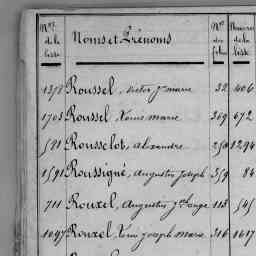 Nos de la liste Noms et Prénoms Nos des folios Numéros de la liste
1378 Roussel, Victor Jn marie 32 406
1703 Roussel, Louis marie 369 672
581 Rousselot, alexandre 250 1294
1591 Roussigné, Augustin Joseph 359 84
711 Rouxel, Augustin 113 545
1047 Rouxel, Louis Joseph Marie 316 1617